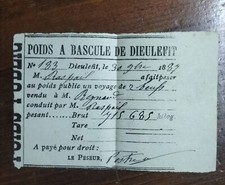 POIDS PUBLIC
POIDS A BASCULE DE DIEULEFIT
N° 133 Dieulefit, le 30 9bre 1889
M. Raspail a fait peser
au poids public un voyage de 2 bœufs
vendu à M. Reynaud
conduit par M. Raspail
pesant, Brut 715 685 kilog
Tare
Net
A payé pour droit:
LE PESEUR,